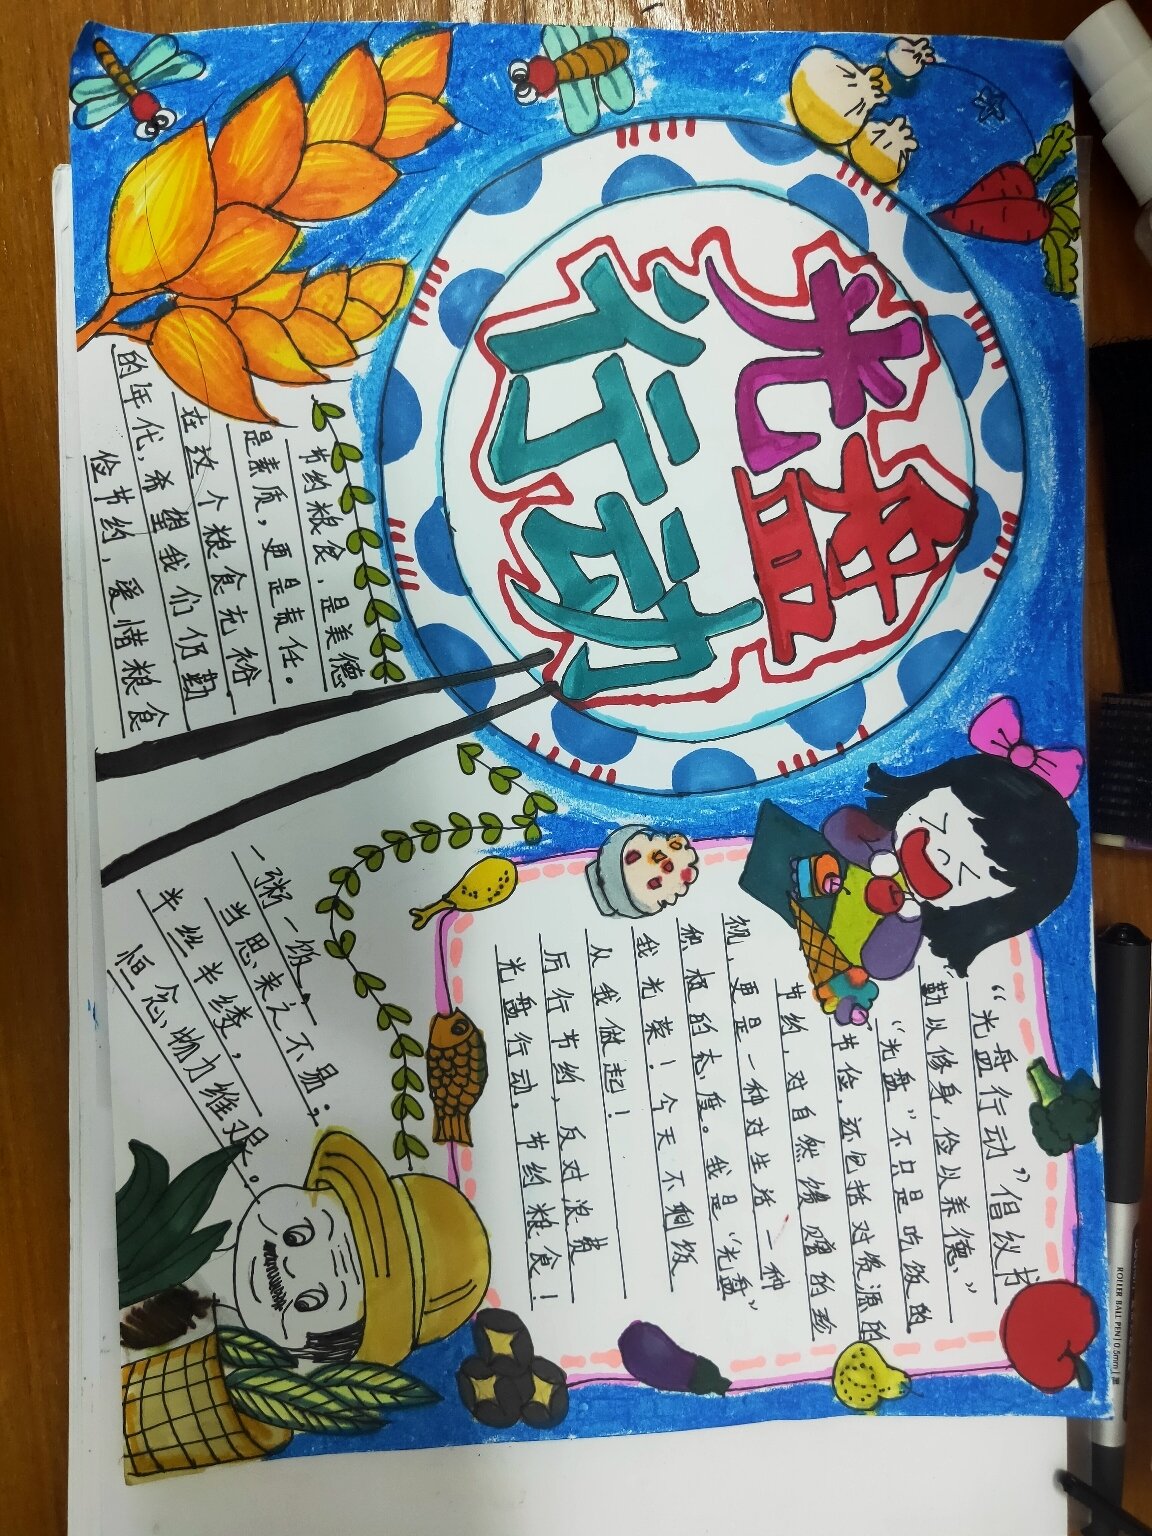 光盘
行动
节约粮食，是美德
是素质，更是责任。
在这个粮食充裕
的年代，希望我们仍勤
俭节约，爱惜粮食
一粥一饭，
当思来之不易；
半丝半缕，
恒念物力维艰。
“光盘行动”倡议书
“勤以修身，俭以养德、”
“光盘”不只是吃饭的
节俭，还包括对资源的
节约，对自然馈赠的珍
视，更是一种对生活一种
积极的态度。我是“光盘”
我光荣！今天不剩饭
从我做起！
厉行节约，反对浪费
光盘行动，节约粮食！
ROLLER BALL PEN 0.5mm 黑